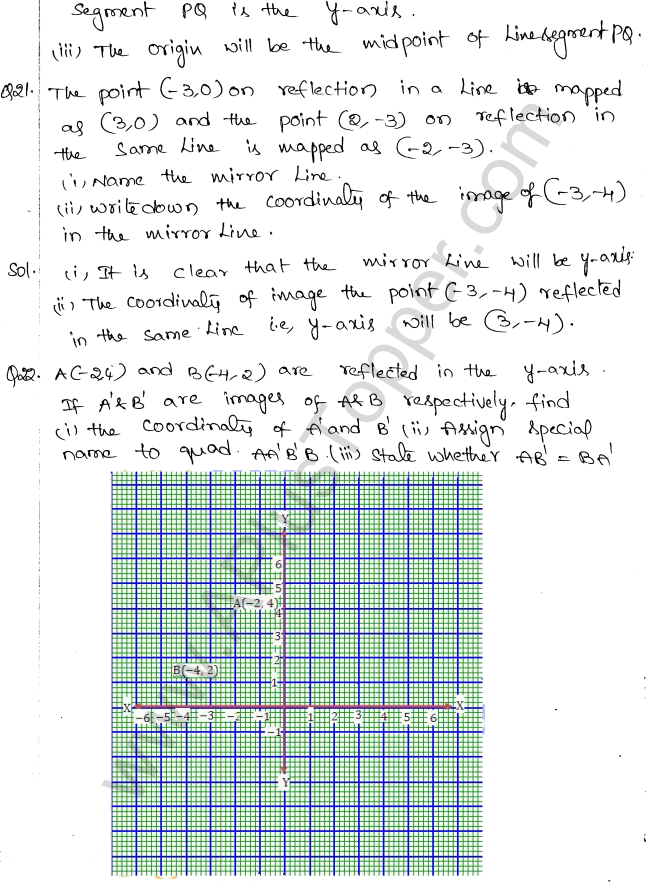 segment PQ is the y-axis.
(iii) The origin will be the midpoint of Line segment PQ.
Q21. The point (-3,0) on reflection in a Line is mapped
as (3,0) and the point (2,-3) on reflection in
the same Line is mapped as (-2,-3).
(i) Name the mirror Line.
(ii) write down the coordinates of the image of (-3,-4)
in the mirror Line.
Sol. (i) It is clear that the mirror Line will be y-axis.
(ii) The coordinates of image the point (-3,-4) reflected
in the same Line i.e, y-axis will be (3,-4).
Q22. A(-2,4) and B(-4,2) are reflected in the y-axis.
If A'& B' are images of A&B respectively, find
(i) the coordinates of A' and B' (ii) Assign special
name to quad. AA'B'B (iii) State whether AB' = BA'
Y
6
5
A(−2, 4)
4
3
2
B(−4, 2)
1
X −6 −5 −4 −3 −2 −1 1 2 3 4 5 6 X
−1
Y
www.APlusTopper.com